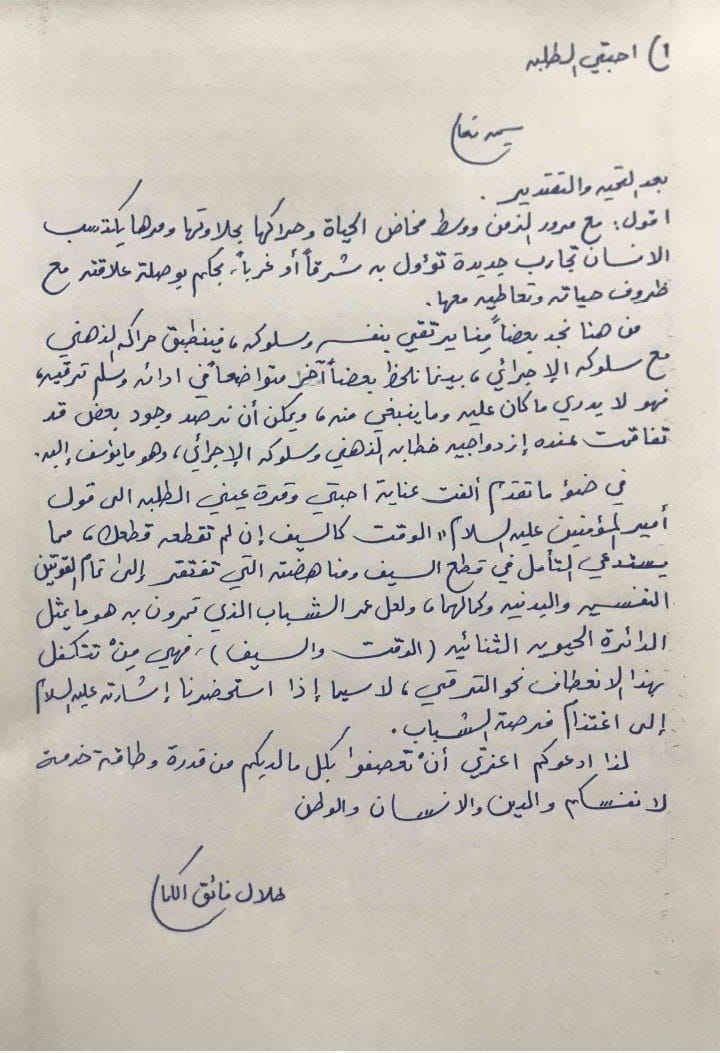 ١) احبتي الطلبه
بسمه تعالى
بعد التحيه والتقدير .
اقول: مع مرور الزمن ووسط مخاض الحياة وحراكها بحلاوتها ومرها يكتسب
الانسان تجارب جديدة تؤول به شرقاً أو غرباً، بحكم بوصلة علاقته مع
ظروف حياته وتعاطيه معها.
من هنا نجد بعضاً مِنا يرتقي بنفسه وسلوكه، فينطبق حراكه الذهني
مع سلوكه الإجرائي، بينما نلحظ بعضاً آخر متواضعاً في ادائه وسلم ترقيه،
فهو لا يدري ما كان عليه وما ينبغي منه، ويمكن أن نرصد وجود بعض قد
تفاقمت عنده إزدواجيه خطابه الذهني وسلوكه الإجرائي، وهو ما يؤسف إليه.
في ضوء ما تقدم ألفت عناية احبتي وقرة عيني الطلبه الى قول
أمير المؤمنين عليه السلام "الوقت كالسيف إن لم تقطعه قطعك، مما
يستدعي التأمل في قطع السيف ومناهضته التي تفتقر إلى تمام القوتين
النفسيه والبدنيه وكمالها، ولعل عمر الشباب الذي تمرون به هو ما يمثل
الدائرة الحيويه الثنائيه (الوقت والسيف)، فهي مِنْ تتكفل
بهذا الانعطاف نحو الترقي، لا سيما إذا استحضرنا إشارته عليه السلام
إلى اغتنام فرصة الشباب.
لذا ادعوكم اعزتي أنْ تعصفوا بكل ما لديكم من قدرة وطاقة خدمة
لانفسكم والدين والانسان والوطن
طلال فائق الكمالي